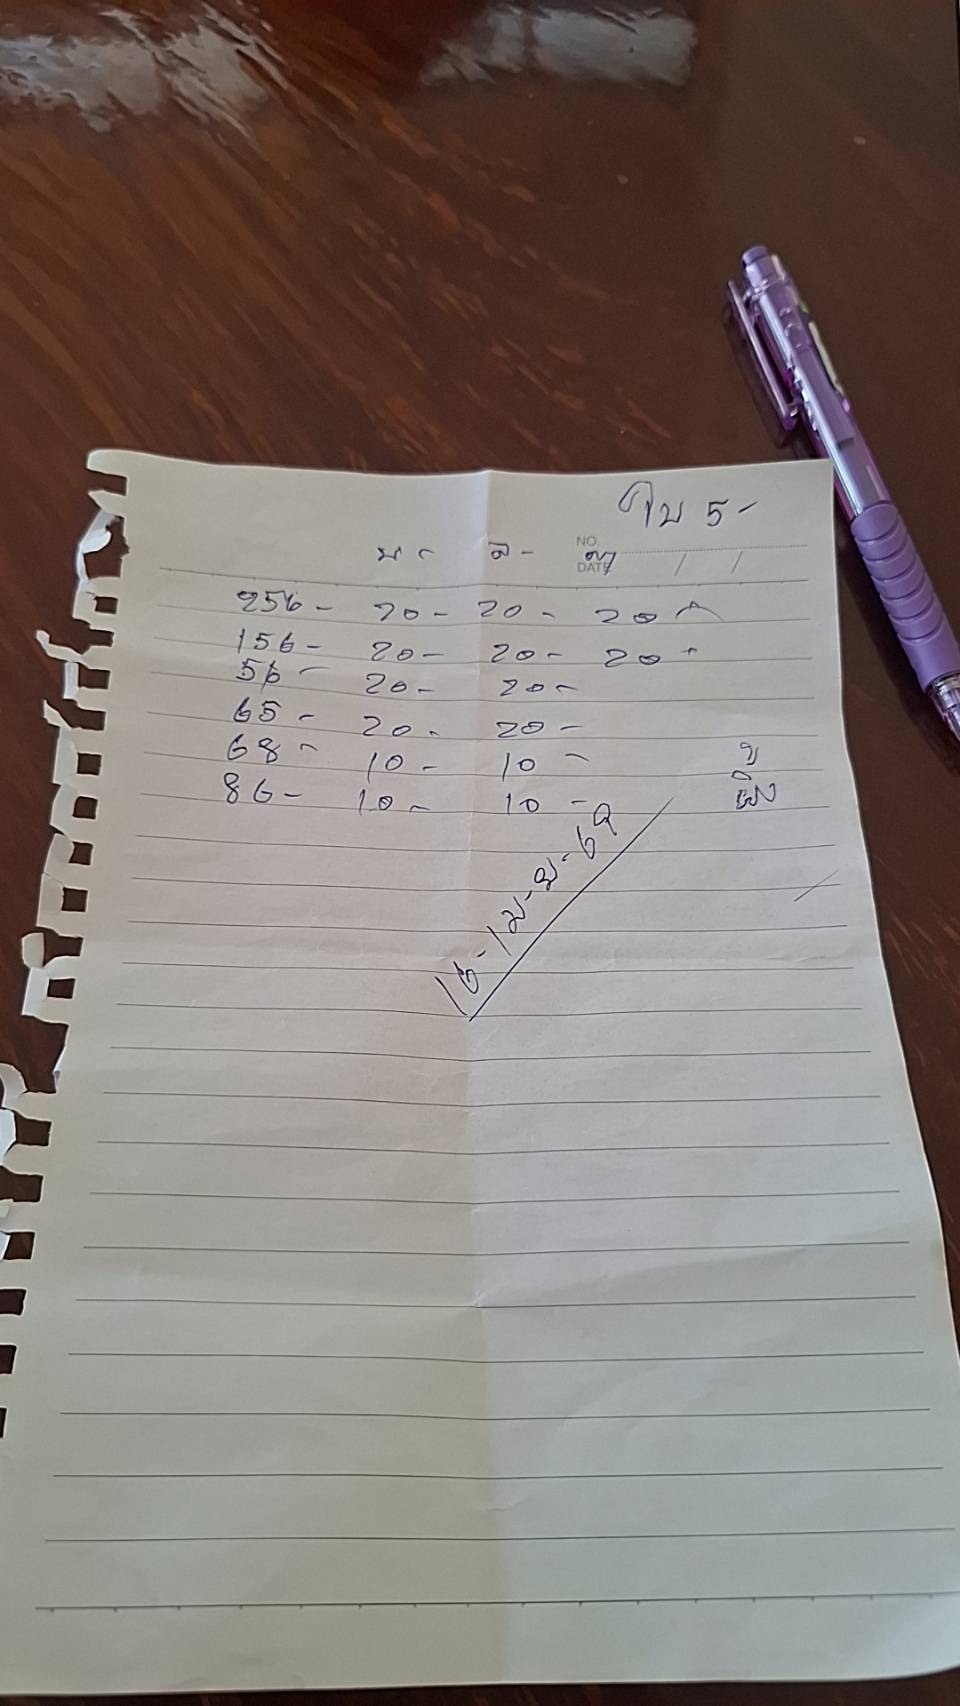 ใบ 5-
NO.
บ - ล - ต
DATE / /
256 - 20 - 20 - 20
156 - 20 - 20 - 20
56 - 20 - 20 -
65 - 20 - 20 -
68 - 10 - 10 -
86 - 10 - 10 -
16-เม-ย-69